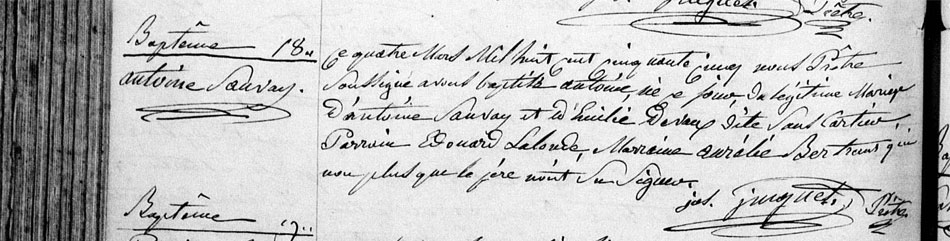 Prêtre.
Baptême 18..
antoine Sauvay.
Ce quatre Mars Mil huit cent cinquante cinq nous Prêtre
Soussigné avons baptisé antoine, né ce jour, du légitime Mariage
d'antoine Sauvay et d'Emilie Devau dite Sans Cartier.
Parrain Edouard Lalonde, Marraine aurélie Bertrand qui
non plus que le père n'ont su Signer.
jos. Ptre.
Baptême